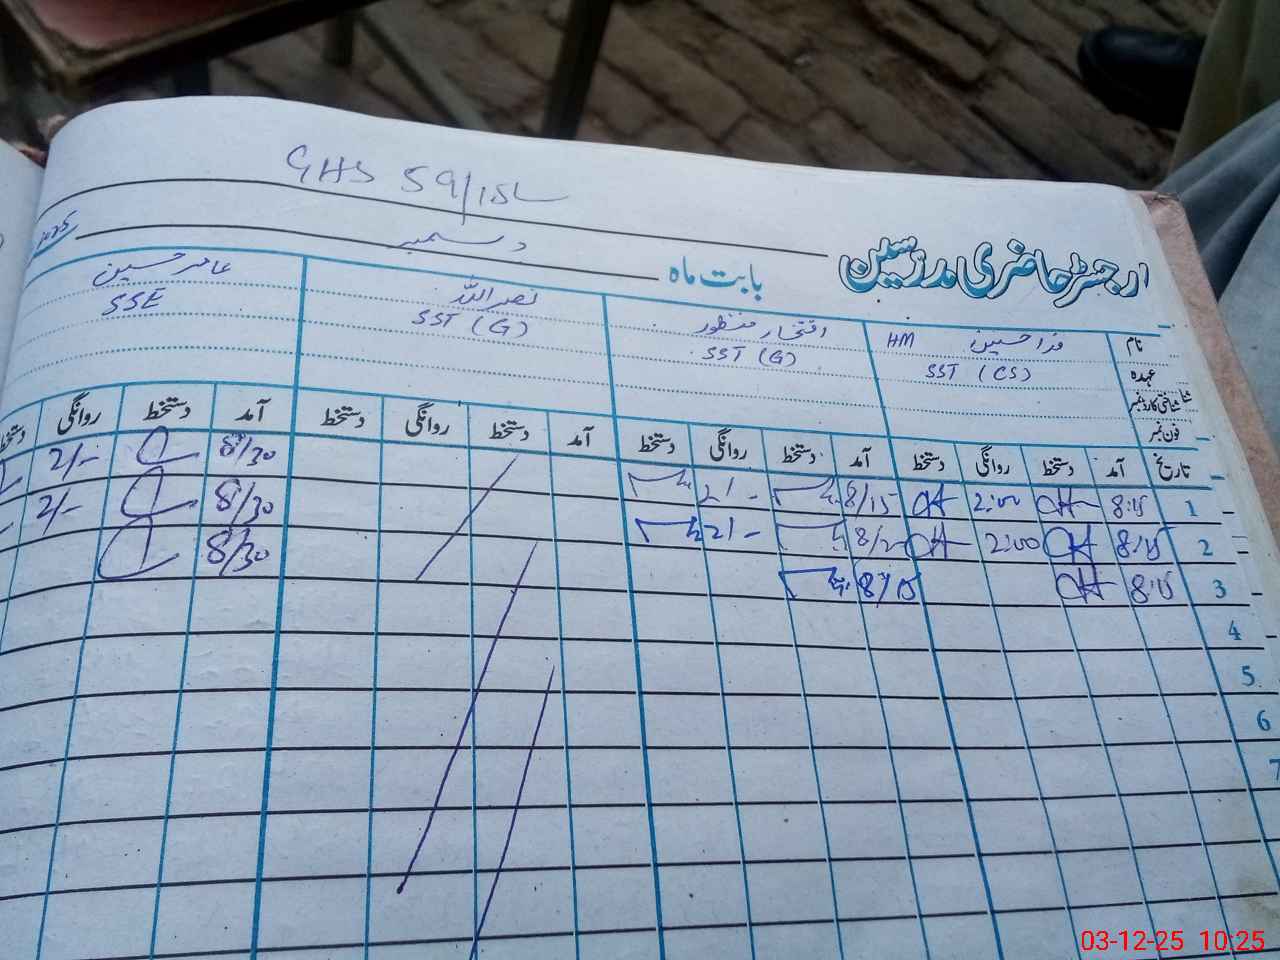 GHS 59/15L
رجسٹر حاضری مدرسین
بابت ماہ دسمبر 2025
نام فدا حسین HM افتخار منظور نصر اللہ عامر حسین
عہدہ SST (CS) SST (G) SST (G) SSE
شناختی کارڈ نمبر
فون نمبر
تاریخ آمد دستخط روانگی دستخط آمد دستخط روانگی دستخط آمد دستخط روانگی دستخط آمد دستخط روانگی دستخط
1 8:15 2:00 8/15 2/- 8/30 2/-
2 8:15 2:00 2/- 8/30 2/-
3 8:15 8/15 8/30
4
5
6
7
03-12-25 10:25